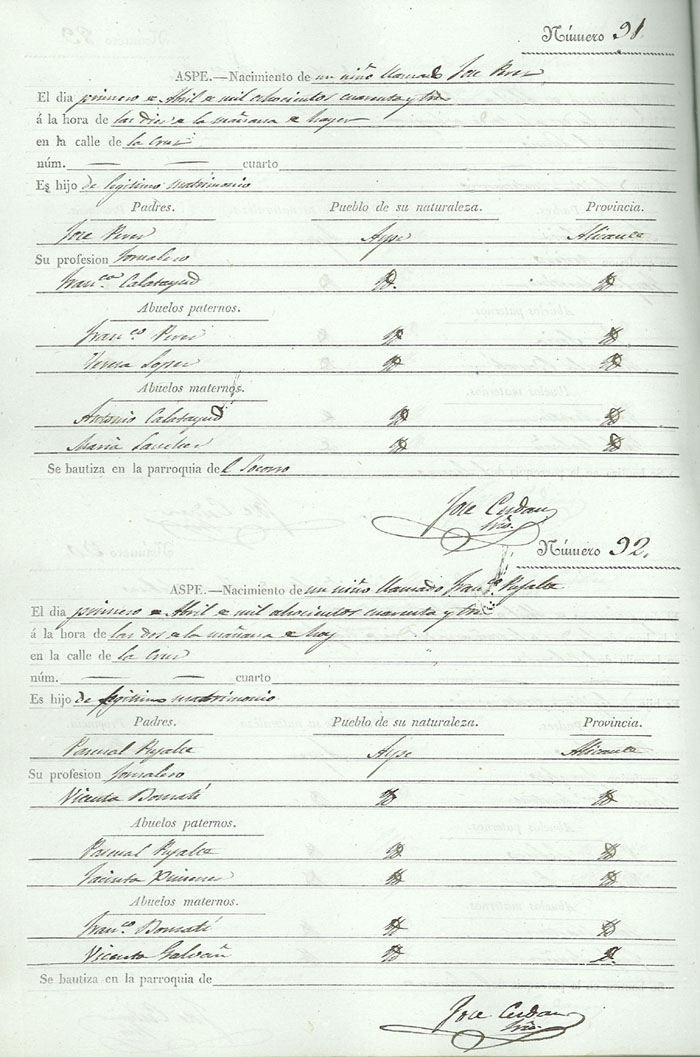 Número 91.
ASPE.—Nacimiento de un niño llamado Jose Perez
El dia primero de Abril de mil ochocientos cuarenta y tres
á la hora de las diez de la mañana de hayer
en la calle de la Cruz
núm. — — cuarto
Es hijo de legitimo matrimonio
Padres. Pueblo de su naturaleza. Provincia.
Jose Perez Aspe Alicante
Su profesion Jornalero
Franca. Calatayud Yd. Yd
Abuelos paternos.
Franco. Perez Yd Yd
Teresa Lopez Yd Yd
Abuelos maternos.
Antonio Calatayud Yd Yd
Maria Sanchez Yd Yd
Se bautiza en la parroquia del Socorro
Jose Cerdan
Srio.
Número 92.
ASPE.—Nacimiento de un niño llamado Franco.
El dia primero de Abril de mil ochocientos cuarenta y tres
á la hora de las dos de la mañana de hoy
en la calle de la Cruz
núm. — — cuarto
Es hijo de legitimo matrimonio
Padres. Pueblo de su naturaleza. Provincia.
Pascual Aspe Alicante
Su profesion Jornalero
Vicenta Bonmatí Yd Yd
Abuelos paternos.
Pascual Yd Yd
Jacinta Yd Yd
Abuelos maternos.
Franco. Bonmatí Yd Yd
Vicenta Galvañ Yd Yd
Se bautiza en la parroquia de
Jose Cerdan
Srio.